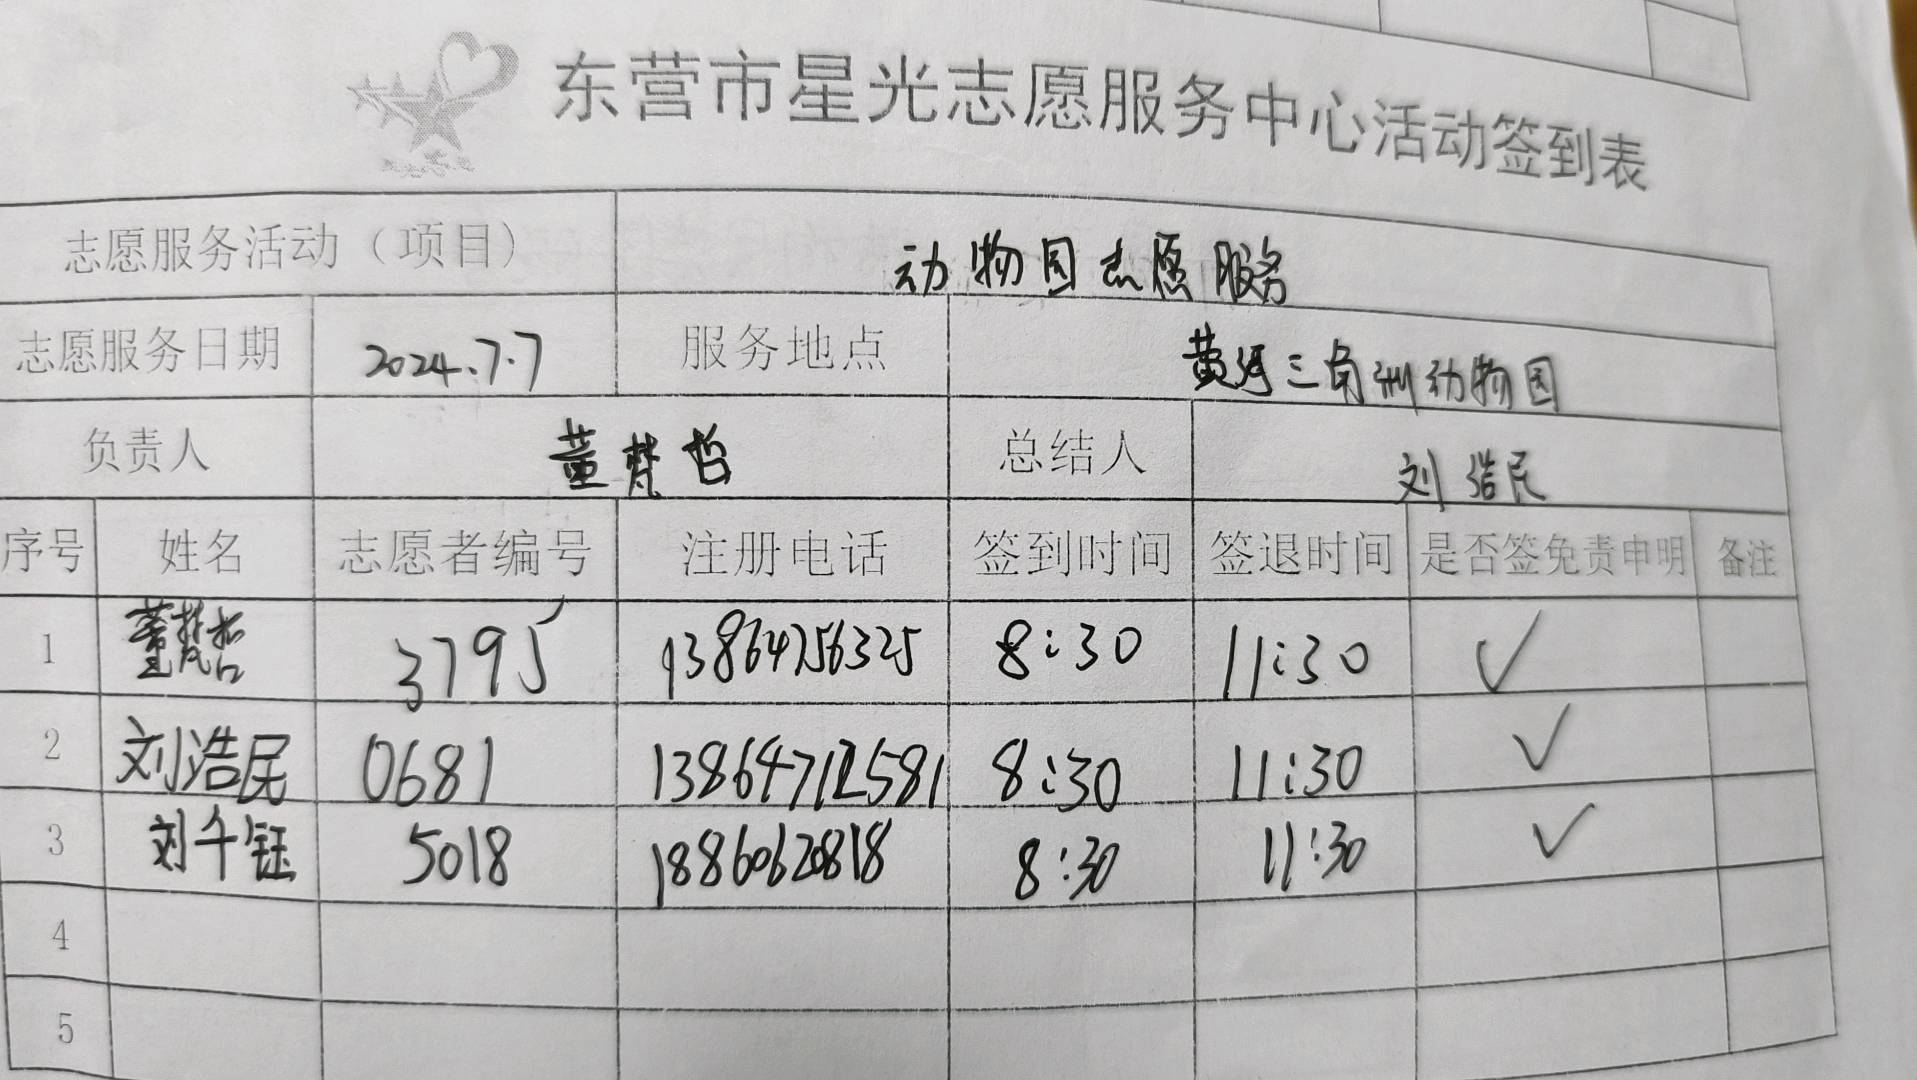 东营市星光志愿服务中心活动签到表
志愿服务活动（项目） 动物园志愿服务
志愿服务日期 2024.7.7 服务地点 黄河三角洲动物园
负责人 董梵哲 总结人 刘浩民
序号 姓名 志愿者编号 注册电话 签到时间 签退时间 是否签免责申明 备注
1 董梵哲 3795 13864756325 8:30 11:30 ✓
2 刘浩民 0681 13864712581 8:30 11:30 ✓
3 刘千钰 5018 18860620818 8:30 11:30 ✓
4
5